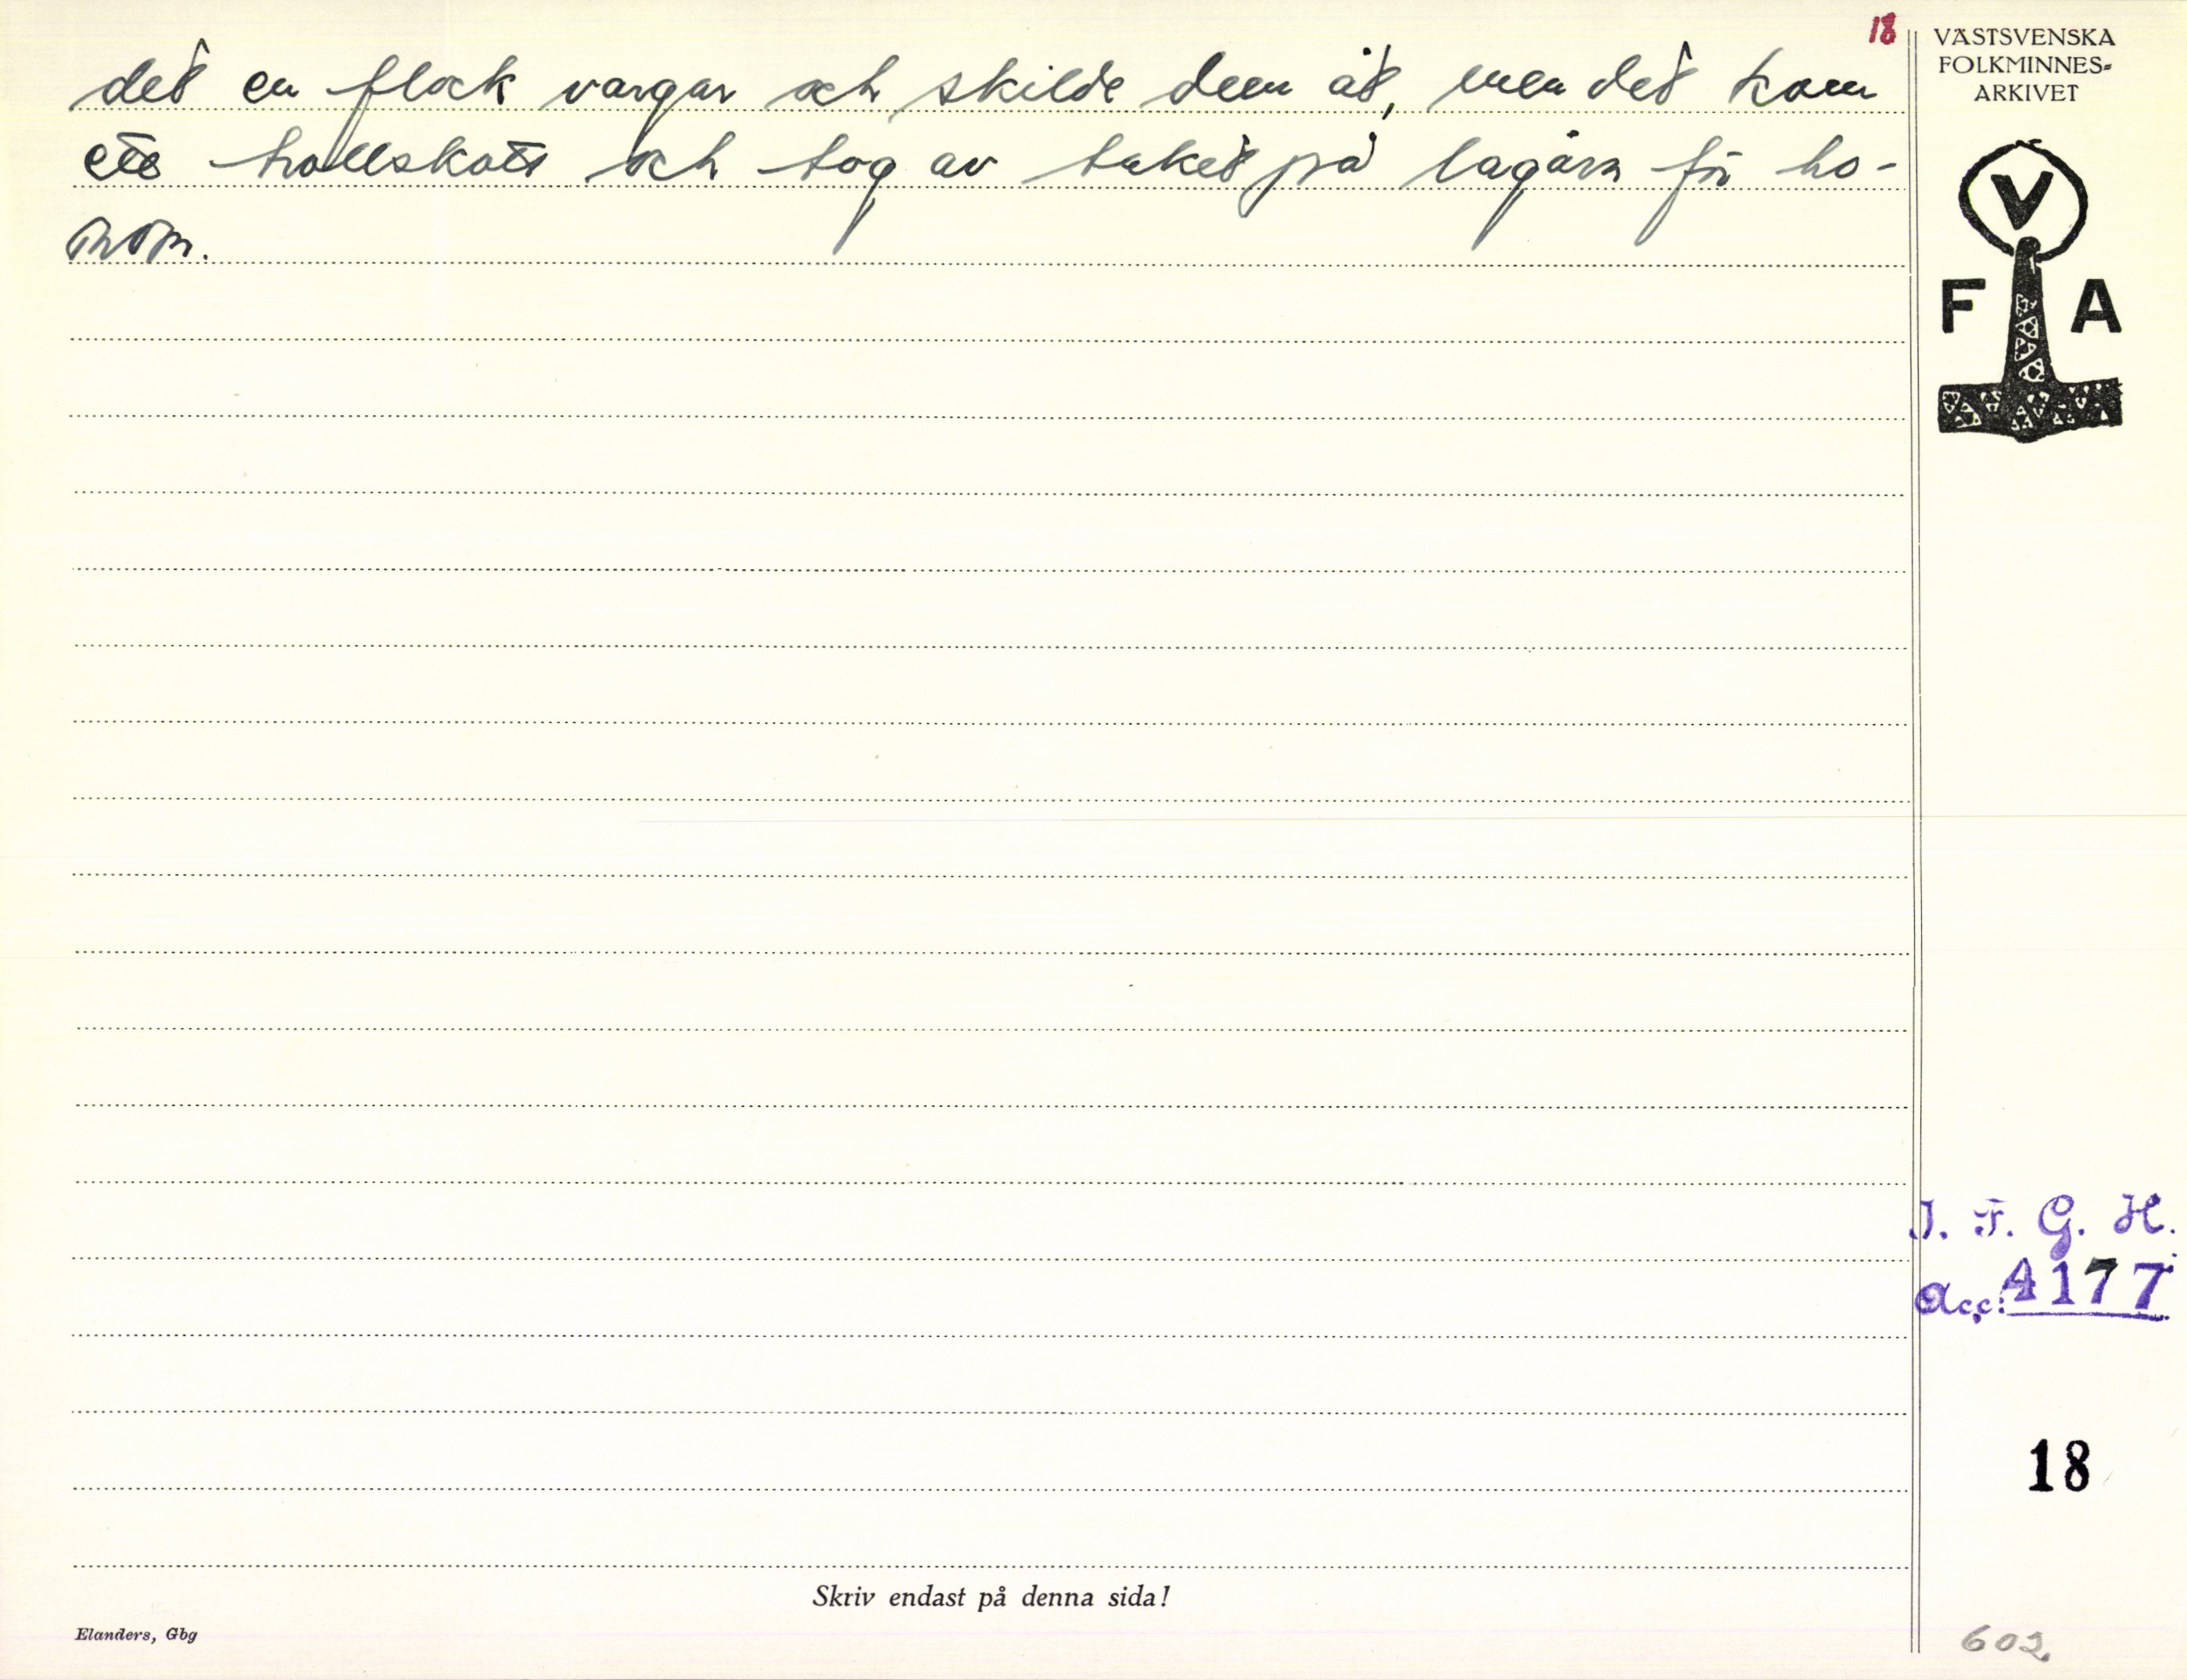 18
det en flock vargar och skilde dem åt, men det kom
ett trollskott och tog av taket på lagårn för ho-
nom.
VÄSTSVENSKA
FOLKMINNES-
ARKIVET
V
F A
I. F. G. H.
Acc: 4177
18
Skriv endast på denna sida!
Elanders, Gbg
602